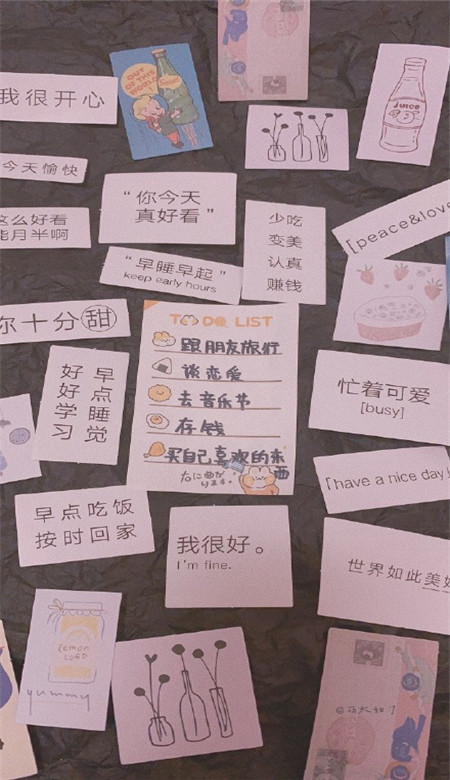 我很开心
OUT OF THIS WORLD
Juice
今天愉快
这么好看
能月半啊
“你今天
真好看”
少吃
变美
认真
赚钱
「peace&love
“早睡早起”
keep early hours
你十分甜
TO DO LIST
跟朋友旅行
谈恋爱
去音乐节
存钱
买自己喜欢的东
西
早点睡觉
好好学习
忙着可爱
[busy]
「have a nice day」
早点吃饭
按时回家
我很好。
I'm fine.
世界如此美
yummy